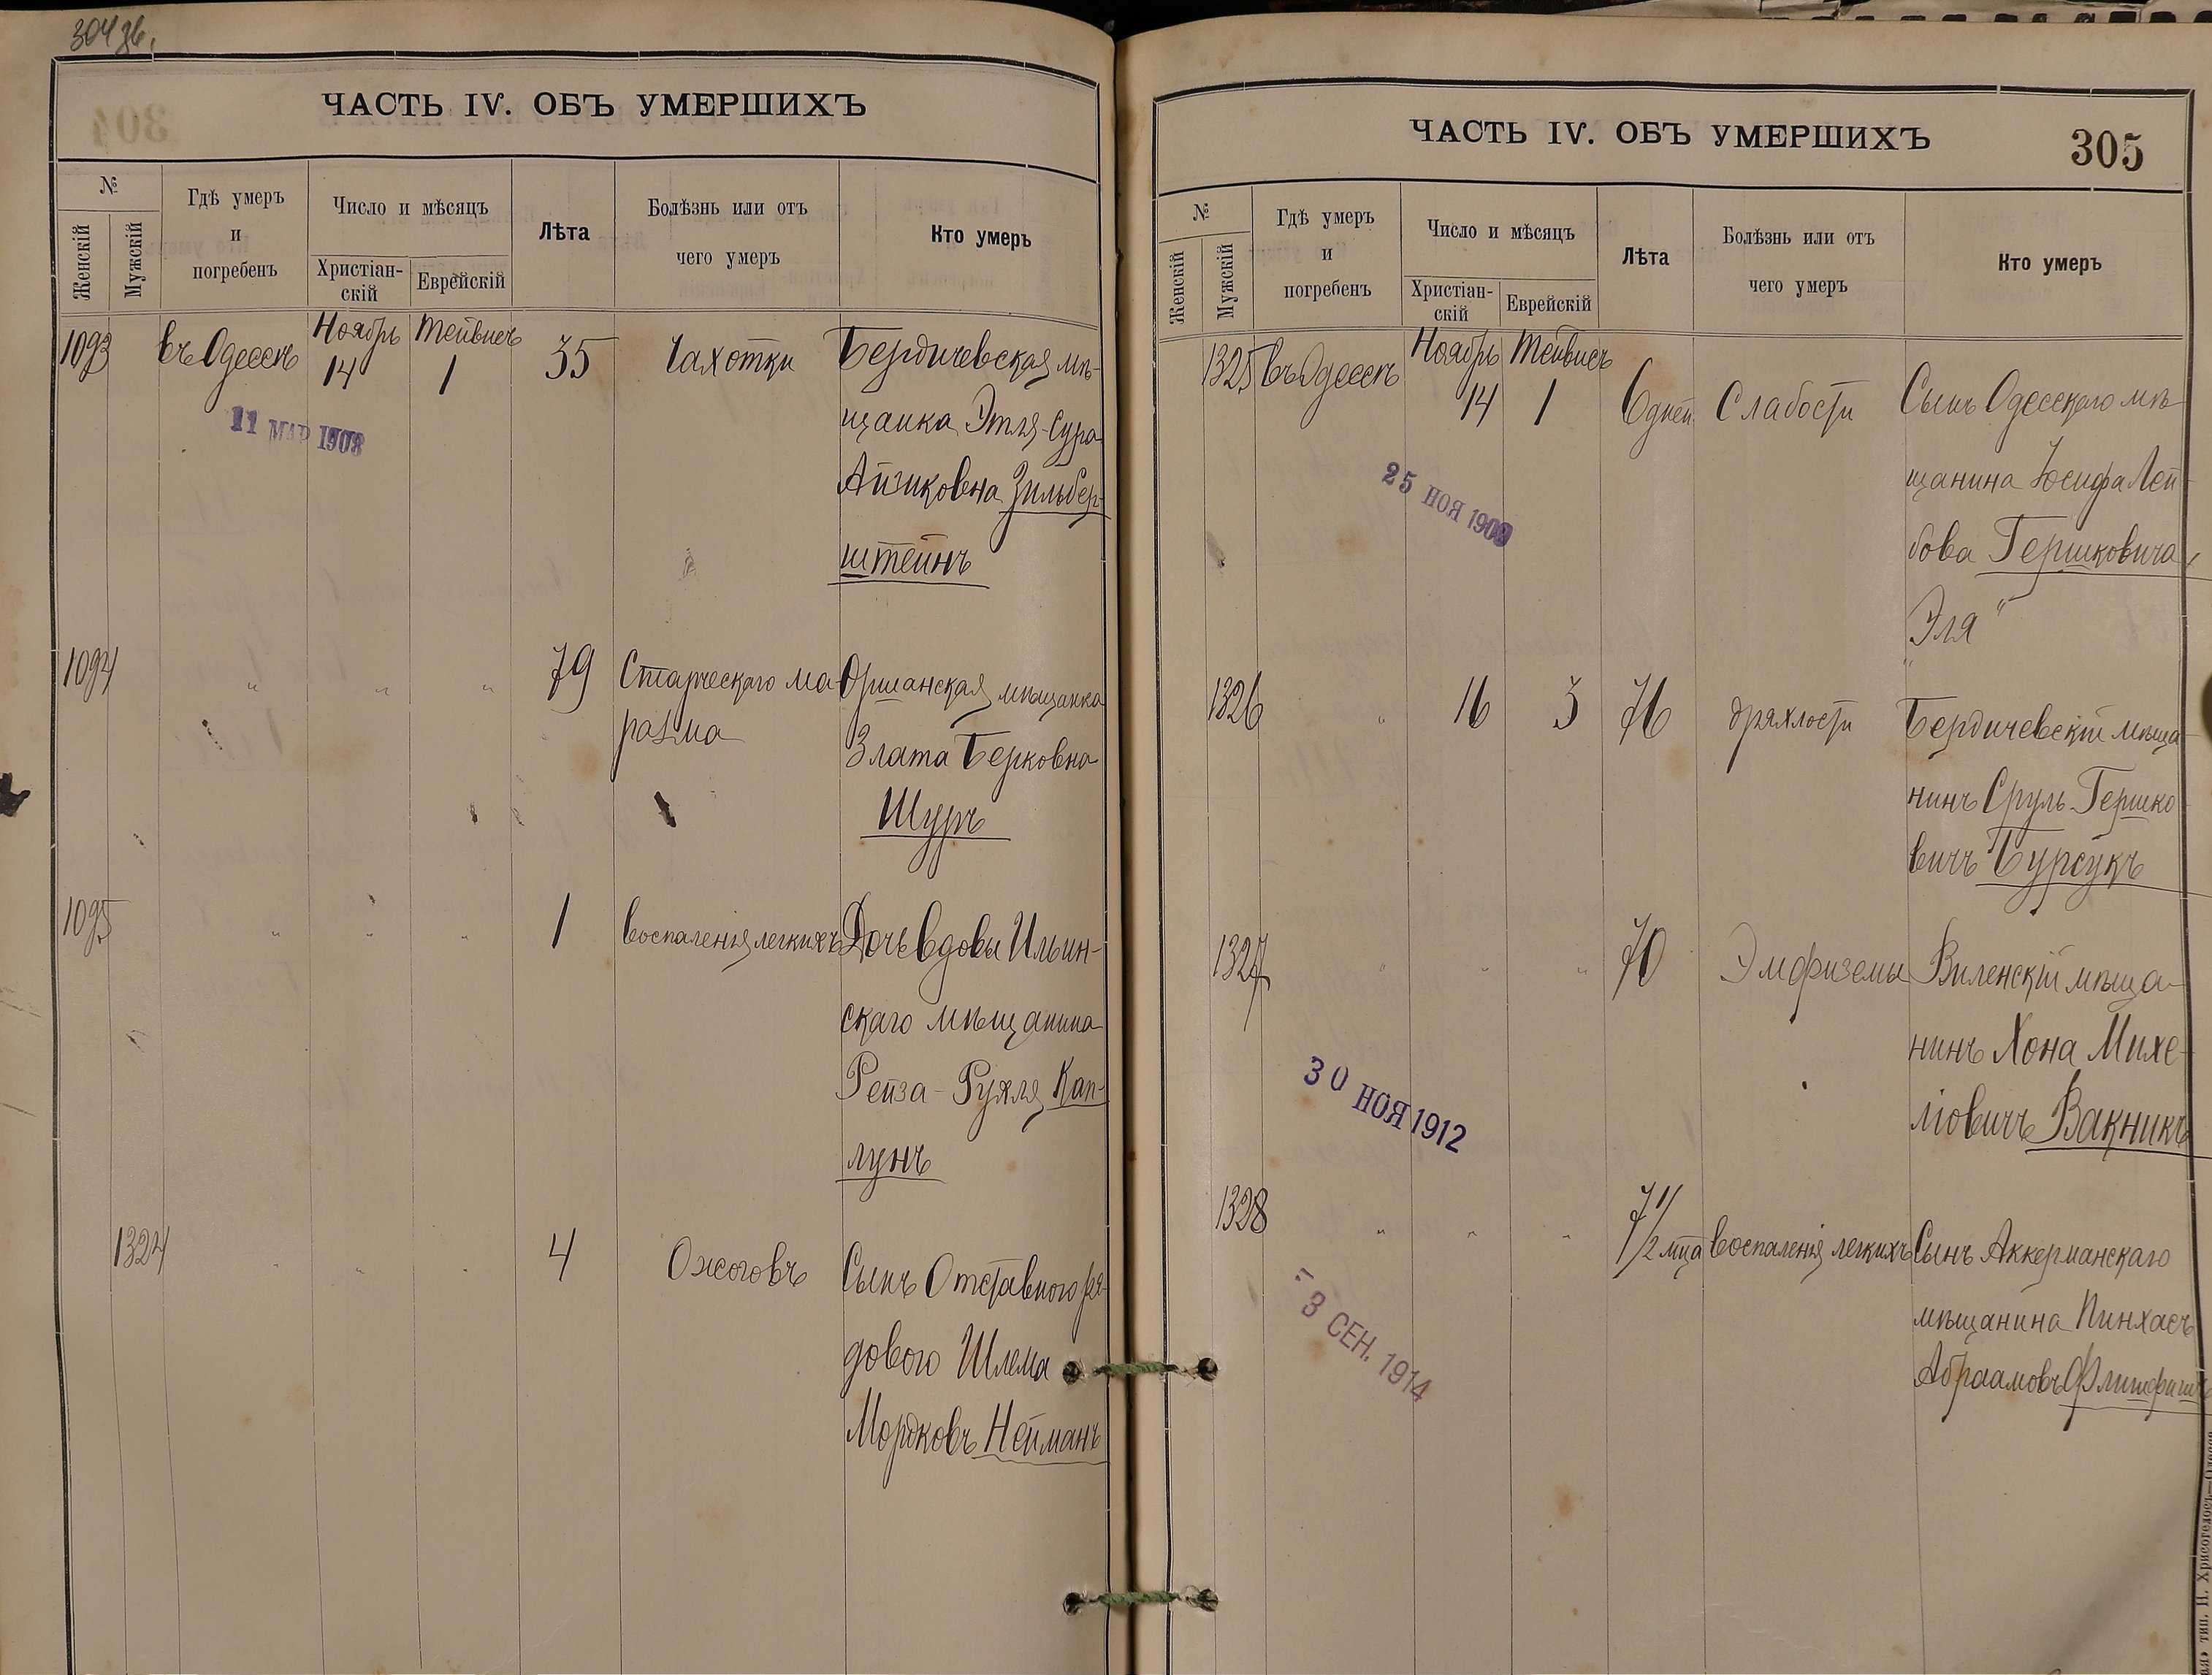 304 зв.
ЧАСТЬ IV. ОБЪ УМЕРШИХЪ
№
Женскій
Мужскій
Гдѣ умеръ
и
погребенъ
Число и мѣсяцъ
Христіан-
скій
Еврейскій
Лѣта
Болѣзнь или отъ
чего умеръ
Кто умеръ
1093 въ Одессѣ Ноябрь 14 Тейвисъ 1 35 Чахотки Бердичевская мѣ-
щанка Этля-Сура
Айзиковна Зильбер-
штейнъ
11 МАР 1908
1094 " " " 79 Старческаго ма- Оршанская мѣщанка
разма Злата Берковна
Шуръ
1095 " " " 1 воспаленія легкихъ Дочь вдовы Ильин-
скаго мѣщанина
Рейза-Рухля Кап-
лунъ
1324 " " " 4 Ожоговъ Сынъ Отставного ря-
дового Шлема
Мордковъ Нейманъ
ЧАСТЬ IV. ОБЪ УМЕРШИХЪ
305
№
Женскій
Мужскій
Гдѣ умеръ
и
погребенъ
Число и мѣсяцъ
Христіан-
скій
Еврейскій
Лѣта
Болѣзнь или отъ
чего умеръ
Кто умеръ
1325 въ Одессѣ Ноябрь 14 Тейвисъ 1 6 дней Слабости Сынъ Одесскаго мѣ-
щанина Іосифа Лей-
бова Гершковича,
"Эля"
25 НОЯ 1909
1326 " 16 3 76 дряхлости Бердичевскій мѣща-
нинъ Сруль Гершко-
вичъ Бурсукъ
1327 " " " 70 Эмфиземы Виленскій мѣща-
нинъ Хона Михе-
ліовичъ Вакникъ
30 НОЯ 1912
1328 " " " 7 1/2 мца воспаленія легкихъ Сынъ Аккерманскаго
мѣщанина Пинхасъ
Абраамовъ
- 3 СЕН. 1914
тип. Н. Хрисогелосъ—Одесса